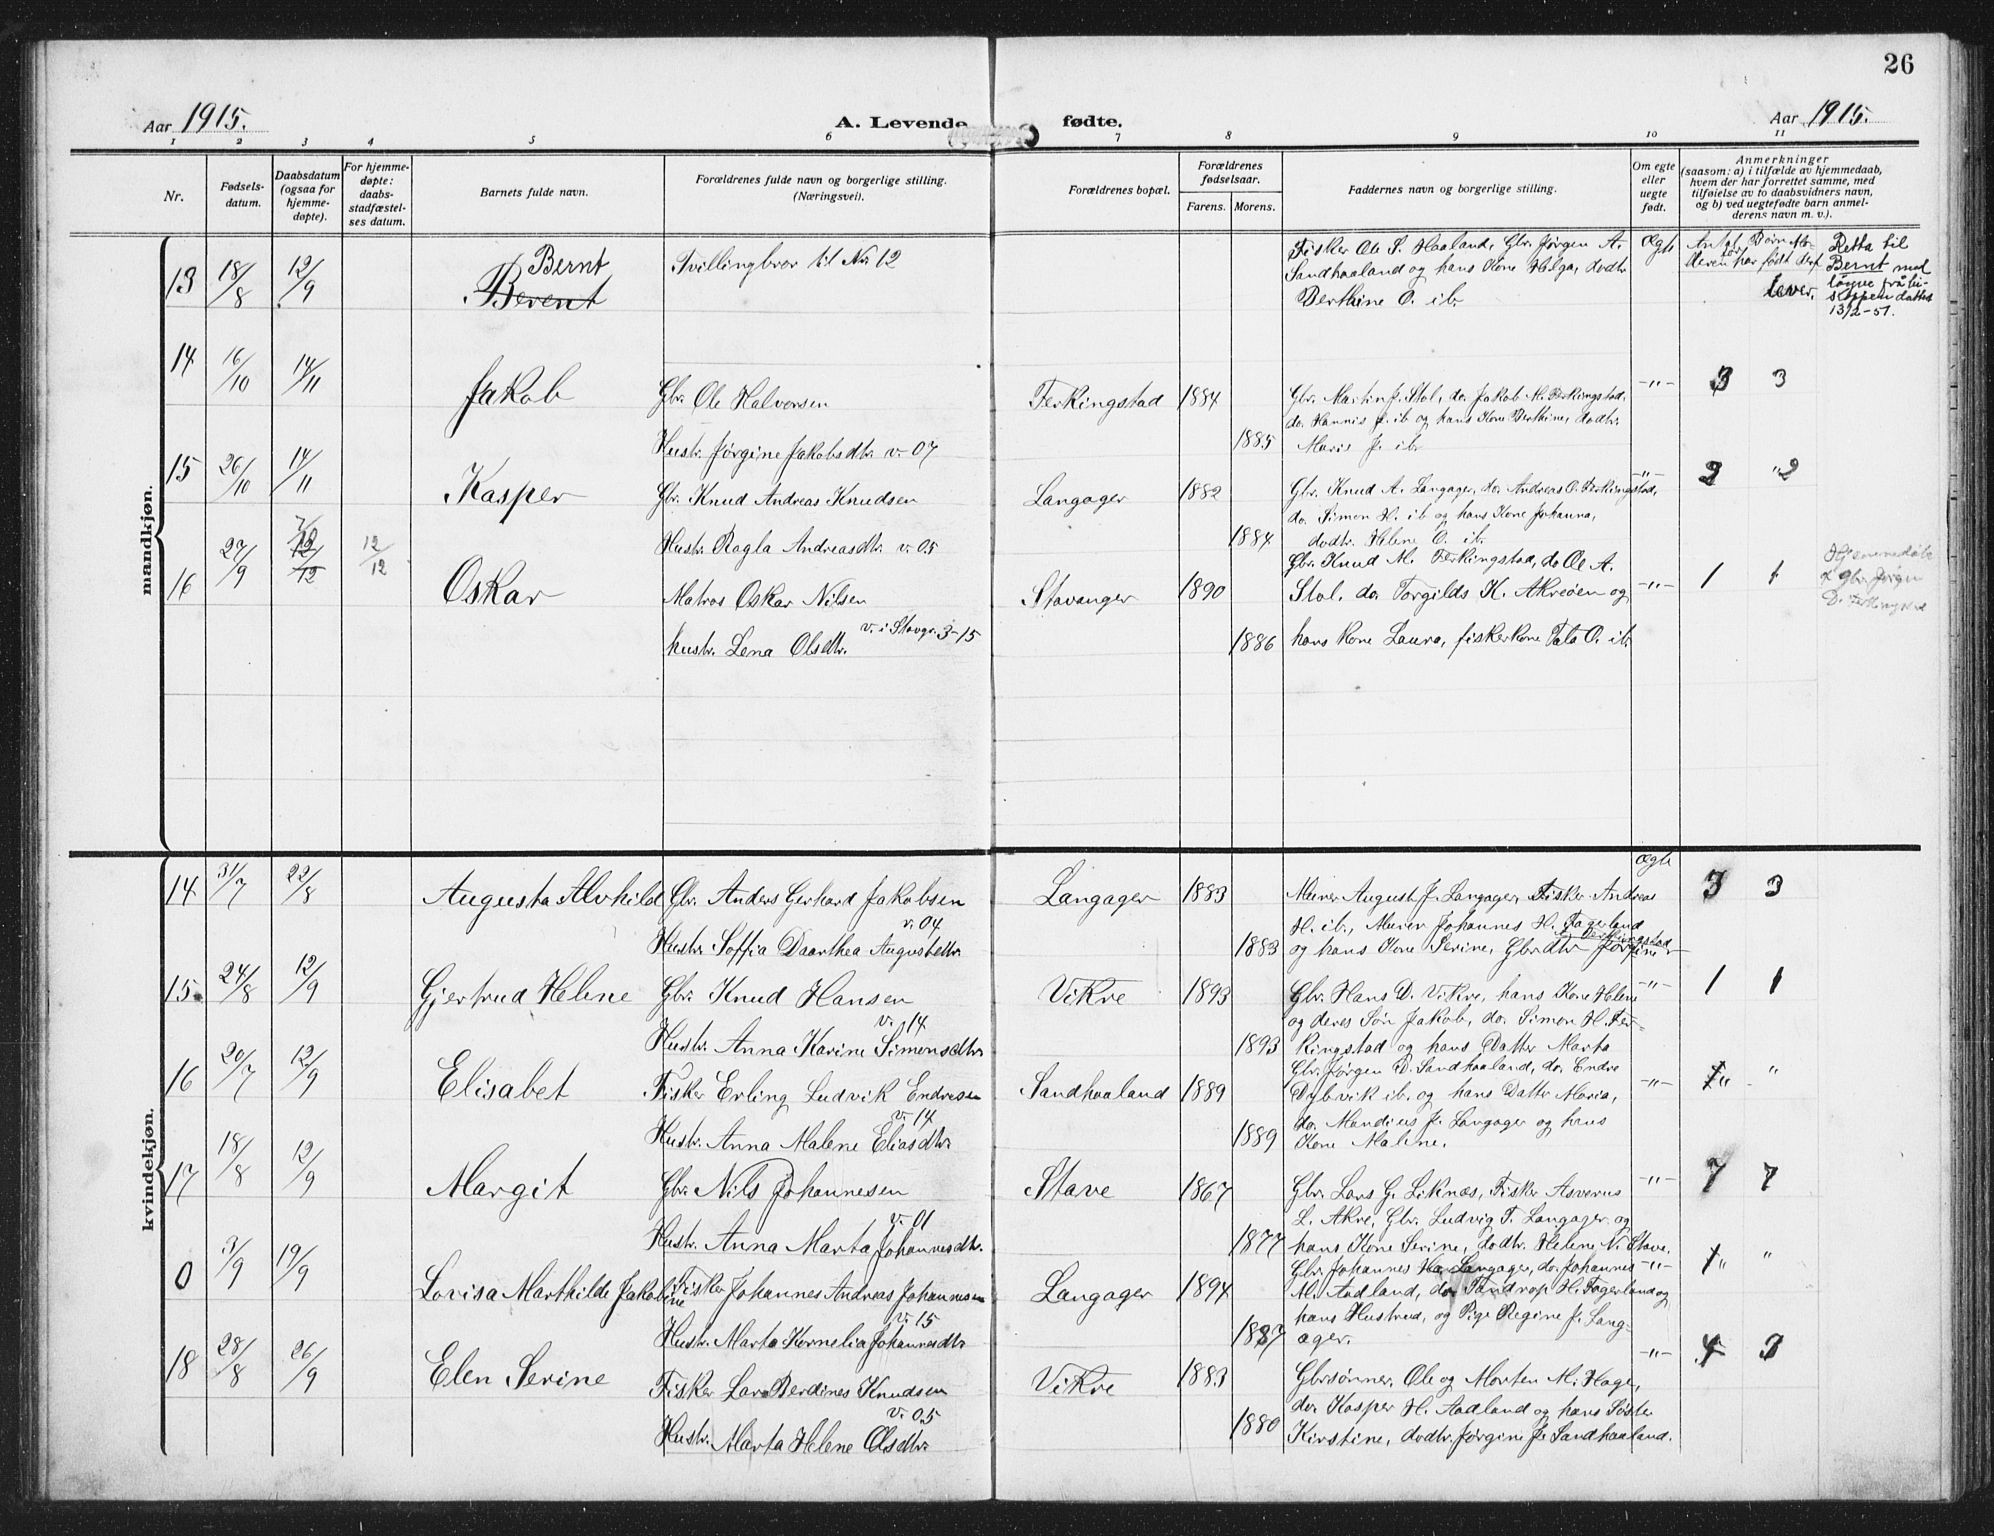 26
Aar 1915.
A. Levende fødte.
Aar 1915.
1 2 3 4 5 6 7 8 9 10 11
Nr.
Fødsels-
datum.
Daabsdatum
(ogsaa for
hjemme-
døpte).
For hjemme-
døpte:
daabs-
stadfæstel-
ses datum.
Barnets fulde navn.
Forældrenes fulde navn og borgerlige stilling.
(Næringsvei).
Forældrenes bopæl.
Forældrenes
fødselsaar.
Farens. Morens.
Faddernes navn og borgerlige stilling.
Om egte
eller
uegte
født.
Anmerkninger
(saasom: a) i tilfælde av hjemmedaab,
hvem der har forrettet samme, med
tilføielse av to daabsvidners navn,
og b) ved uegtefødte barn anmel-
derens navn m. v.).
mandkjøn.
13 18/8 12/9 Bernt
Berent
Tvillingbror til Nr. 12
Fisker Ole S. Haaland, Gbr. Jørgen A.
Sandhaaland og hans Kone Helga, dodtr.
Berthine O. ib.
Ægte
Ant. Børn Mo-
deren har født før
lever.
Retta til
Bernt med
løyve frå bi-
skoppen datts
13/2-51.
14 16/10 14/11 Jakob
Gbr. Ole Halvorsen
Hustr. Jørgine Jakobsdtr. v. 07
Ferkingstad 1884
1885
Gbr. Martin J. Stol, do. Jakob M. Ferkingstad,
do. Hannis J. ib og hans Kone Berthine, dodtr.
Maris J. ib.
-"- 3 3
15 26/10 14/11 Kasper
Gbr. Knud Andreas Knudsen
Hustr. Ragla Andreasdtr. v. 05
Langager 1882
1884
Gbr. Knud A. Langager, do. Andreas O. Ferkingstad,
do. Simon H. ib og hans Kone Johanna,
dodtr. Helene O. ib.
-"- 2 "2
16 27/9 7/10 12/12 12/12 Oskar
Matros Oskar Nilsen
v. i Stavgr. 3-15
Hustr. Lena Olsdtr.
Stavanger 1890
1886
Gbr. Knud M. Ferkingstad, do Ole A.
Stol, do. Torgilds K. Akreøen og
hans Kone Laura, fiskerkone Tala O. ib.
-"- 1 1
Hjemmedøbt
af Gbr. Jørgen
D. Ferkingstad
kvindekjøn.
14 31/7 22/8 Augusta Alvhild
Gbr. Anders Gerhard Jakobsen
v. 04
Hustr. Soffia Daarthea Augustdtr.
Langager 1883
1883
Murer August J. Langager, Fisker Andreas
H. ib., Murer Johannes H. Fagerland
og hans Kone Serine, Gbrdtr Jørgine
A. Ferkingstad
Ægte 3 3
15. 24/8 12/9 Gjertrud Helene
Gbr. Knud Hansen
v. 14
Hustr. Anna Karine Simonsdtr.
Vikre 1893
1893
Gbr. Hans D. Vikre, hans Kone Helene
og deres Søn Jakob, do. Simon H. Fer-
kingstad og hans Datter Marta
-"- 1 1
16 20/7 12/9 Elisabet
Fisker Erling Ludvik Endresen
v. 14
Hustr. Anna Malene Eliasdtr.
Sandhaaland 1889
1889
Gbr. Jørgen D. Sandhaaland, do. Endre
Dybvik ib. og hans Datter Maria,
do. Mandius J. Langager og hans
Kone Malene.
-"- 1" "
17 18/8 12/9 Margit
Gbr. Nils Johannesen
v. 01
Hustr. Anna Marta Johannesdtr.
Stave 1867
1877
Gbr. Lars G. Liknæs, Fisker Asverus
L. Akre, Gbr. Ludvig T. Langager og
hans Kone Serine, dodtr. Helene N. Stave.
-"- 7 7
0 3/9 19/9 Lovisa Marthilde Jakobine
Fisker Johannes Andreas Johannesen
v. 15
Hustr. Marta Kornelia Johannesdtr.
Langager 1894
1887
Gbr. Johannes Langager, do. Johannes
M. Aadland, do Tandrop H. Fagerland og
hans Hustrud, og Pige Regine J. Lang-
ager.
-"- 1" "
18 28/8 26/9 Elen Serine
Fisker Lars Berdines Knudsen
v. 05
Hustr. Marta Helene Olsdtr.
Vikre 1883
1880
Gbrsønner Ole og Morten M. Hage,
do. Kasper H. Aadland og hans Søster
Kirstine, dodtr. Jørgine J. Sandhaaland.
-"- 4 3